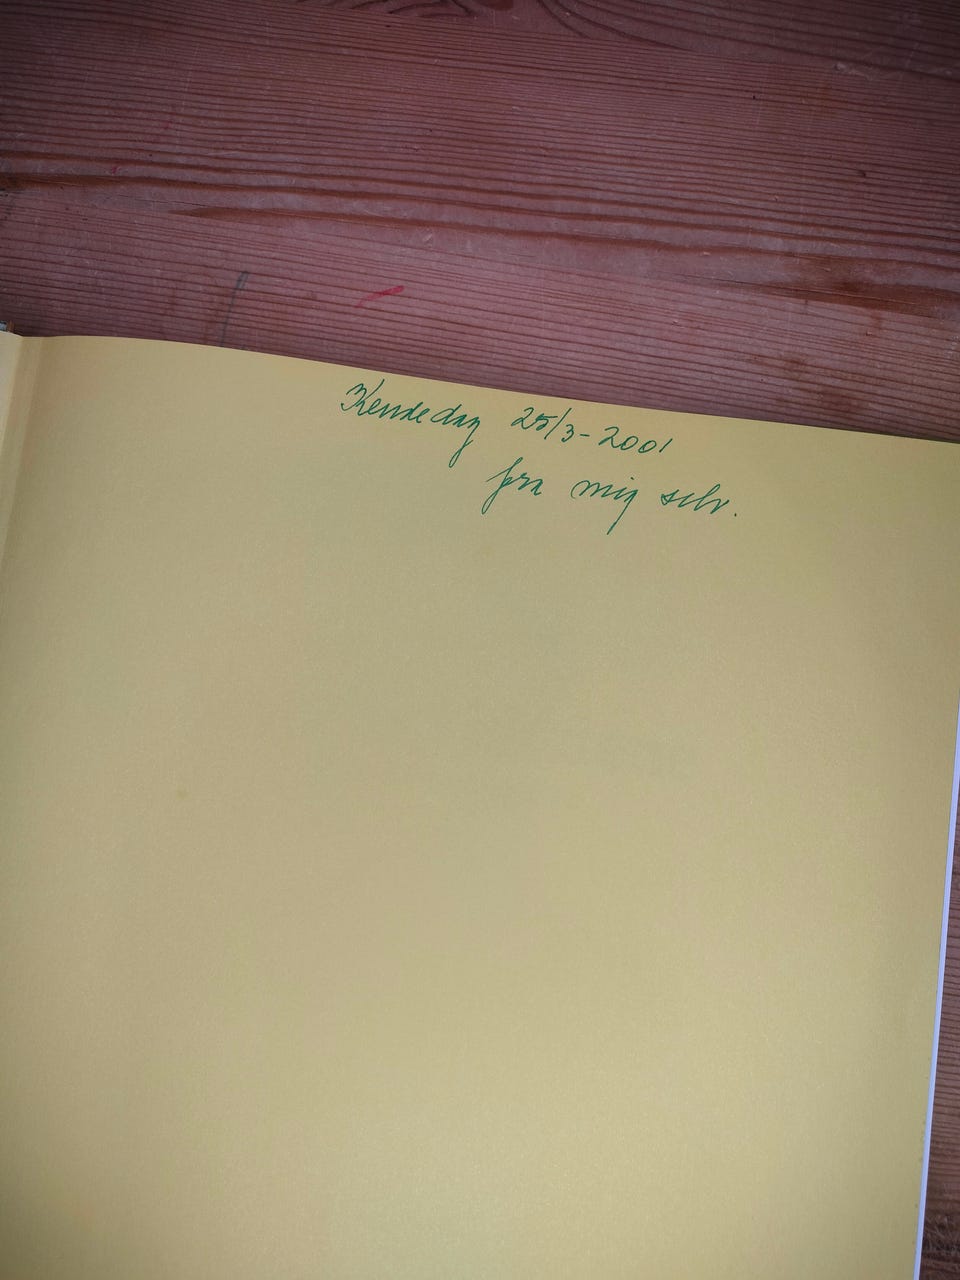 Kendedag 25/3-2001
fra mig selv.